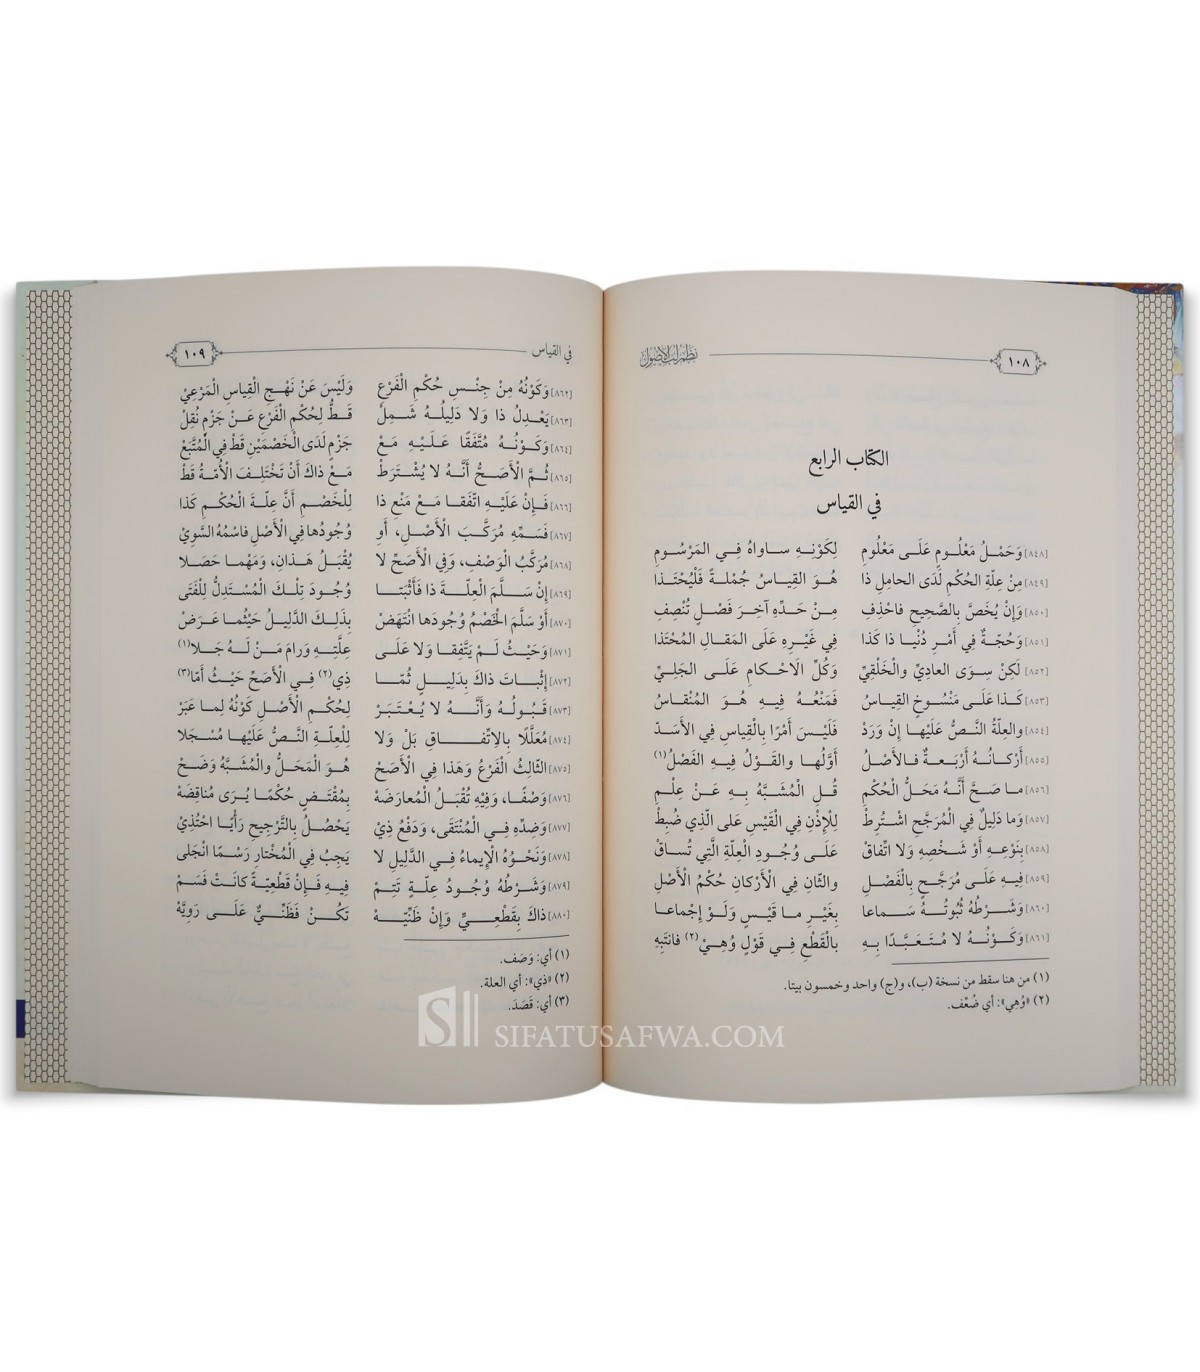 ١٠٨
نظم لب الأصول
الكتاب الرابع
في القياس
[٨٤٨] وَحَمْلُ مَعْلُومٍ عَلَى مَعْلُومِ لِكَوْنِهِ ساواهُ فِي المَرْسُومِ
[٨٤٩] مِنْ عِلَّةِ الحُكْمِ لَدَى الحامِلِ ذا هُوَ القِياسُ جُمْلَةً فَلْيُحْتَذا
[٨٥٠] وَإِنْ يُخَصَّ بِالصَّحِيحِ فاحْذِفِ مِنْ حَدِّهِ آخِرَ فَصْلٍ تُنْصِفِ
[٨٥١] وَحُجَّةٌ فِي أَمْرِ دُنْيا ذا كَذا فِي غَيْرِهِ عَلَى المَقالِ المُحْتَذا
[٨٥٢] لَكِنْ سِوَى العادِيِّ والْخَلْقِيِّ وَكُلِّ الاحْكامِ عَلَى الجَلِيِّ
[٨٥٣] كَذا عَلَى مَنْسُوخٍ القِياسُ فَمَنْعُهُ فِيهِ هُوَ المُنْقاسُ
[٨٥٤] والعِلَّةُ النَّصُّ عَلَيْها إِنْ وَرَدْ فَلَيْسَ أَمْرًا بِالْقِياسِ فِي الأَسَدّ
[٨٥٥] أَرْكانُهُ أَرْبَعةٌ فالأَصْلُ أَوَّلُها والقَوْلُ فِيهِ الفَصْلُ (١)
[٨٥٦] ما صَحَّ أَنَّهُ مَحَلُّ الْحُكْمِ قُلِ المُشَبَّهُ بِهِ عَنْ عِلْمِ
[٨٥٧] وَما دَلِيلٌ فِي المُرَجَّحِ اشْتُرِطْ لِلْإِذْنِ فِي القَيْسِ عَلى الَّذِي ضُبِطْ
[٨٥٨] بِنَوْعِهِ أَوْ شَخْصِهِ وَلا اتِّفاقْ عَلَى وُجُودِ العِلَّةِ الَّتِي تُساقْ
[٨٥٩] فِيهِ عَلَى مُرَجَّحٍ بِالْفَصْلِ والثّانِ فِي الأَرْكانِ حُكْمُ الأَصْلِ
[٨٦٠] وَشَرْطُهُ ثُبُوتُهُ سَماعا بِغَيْرِ ما قَيْسٍ وَلَوْ إِجْماعا
[٨٦١] وَكَوْنُهُ لا مُتَعَبَّدًا بِهِ بِالْقَطْعِ فِي قَوْلٍ وُهِيْ (٢) فانْتَبِهِ
(١) من هنا سقط من نسخة (ب)، و(ج) واحد وخمسون بيتا.
(٢) «وُهِي»: أي ضُعِّف.
في القياس
١٠٩
[٨٦٢] وَكَوْنُهُ مِنْ جِنْسِ حُكْمِ الْفَرْعِ وَلَيْسَ عَنْ نَهْجِ الْقِياسِ الْمَرْعِيْ
[٨٦٣] يَعْدِلُ ذا وَلا دَلِيلُهُ شَمِلْ قَطُّ لِحُكْمِ الْفَرْعِ عَنْ جَزْمٍ نُقِلْ
[٨٦٤] وَكَوْنُهُ مُتَّفَقًا عَلَيْهِ مَعْ جَزْمٍ لَدَى الْخَصْمَيْنِ قَطْ فِي الْمُتَّبَعْ
[٨٦٥] ثُمَّ الْأَصَحُّ أَنَّهُ لا يُشْتَرَطْ مَعْ ذاكَ أَنْ تَخْتَلِفَ الْأُمّةُ قَطْ
[٨٦٦] فَإِنْ عَلَيْهِ اتَّفَقا مَعْ مَنْعِ ذا لِلْخَصْمِ أَنَّ عِلّةَ الْحُكْمِ كَذا
[٨٦٧] فَسَمِّهِ مُرَكَّبَ الْأَصْلِ، أَوِ وُجُودُها فِي الْأَصْلِ فاسْمُهُ السَّوِيْ
[٨٦٨] مُرَكَّبُ الْوَصْفِ، وَفِي الْأَصَحِّ لا يُقْبَلُ هَذانِ، وَمَهْما حَصَلا
[٨٦٩] إِنْ سَلَّمَ الْعِلّةَ ذا فَأَثْبَتا وُجُودَ تِلْكَ الْمُسْتَدِلُّ لِلْفَتَى
[٨٧٠] أَوْ سَلَّمَ الْخَصْمُ وُجُودَها انْتَهَضْ بِذَلِكَ الدَّلِيلُ حَيْثُما عَرَضْ
[٨٧١] وَحَيْثُ لَمْ يَتَّفِقا وَلا عَلَى عِلَّتِهِ وَرامَ مَنْ لَهُ جَلا (١)
[٨٧٢] إِثْباتَ ذاكَ بِدَلِيلٍ ثُمّا ذِي (٢) فِي الْأَصَحِّ حَيْثُ أَمّا (٣)
[٨٧٣] قَبُولُهُ وَأَنَّهُ لا يُعْتَبَرْ لِحُكْمِ الْأَصْلِ كَوْنُهُ لِما عَبَرْ
[٨٧٤] مُعَلَّلًا بِالِاتِّفاقِ بَلْ وَلا لِلْعِلّةِ النَّصُّ عَلَيْها مُسْجَلا
[٨٧٥] الثّالِثُ الْفَرْعُ وَهَذا فِي الْأَصَحّ هُوَ الْمَحَلُّ والْمُشَبَّهُ وَضَحْ
[٨٧٦] وَصْفًا، وَفِيهِ تُقْبَلُ الْمُعارَضَهْ بِمُقْتَضٍ حُكْمًا يُرَى مُناقِضَهْ
[٨٧٧] وَضِدِّهِ فِي الْمُنْتَقَى، وَدَفْعُ ذِيْ يَحْصُلُ بِالتَّرْجِيحِ رَأْيًا احْتُذِيْ
[٨٧٨] وَنَحْوُهُ الْإِيماءُ فِي الدَّلِيلِ لا يَجِبُ فِي الْمُخْتارِ رَسْمًا انْجَلَى
[٨٧٩] وَشَرْطُهُ وُجُودُ عِلّةٍ تَتِمّْ فِيهِ فَإِنْ قَطْعِيّةً كانَتْ فَسَمْ
[٨٨٠] ذاكَ بِقَطْعِيٍّ وَإِنْ ظَنِّيّهْ تَكُنْ فَظَنِّيٌّ عَلَى رَوِيّهْ
(١) أي: وَصَف.
(٢) «ذي»: أي العلة.
(٣) أي: قَصَدَ.
SIFATUSAFWA.COM